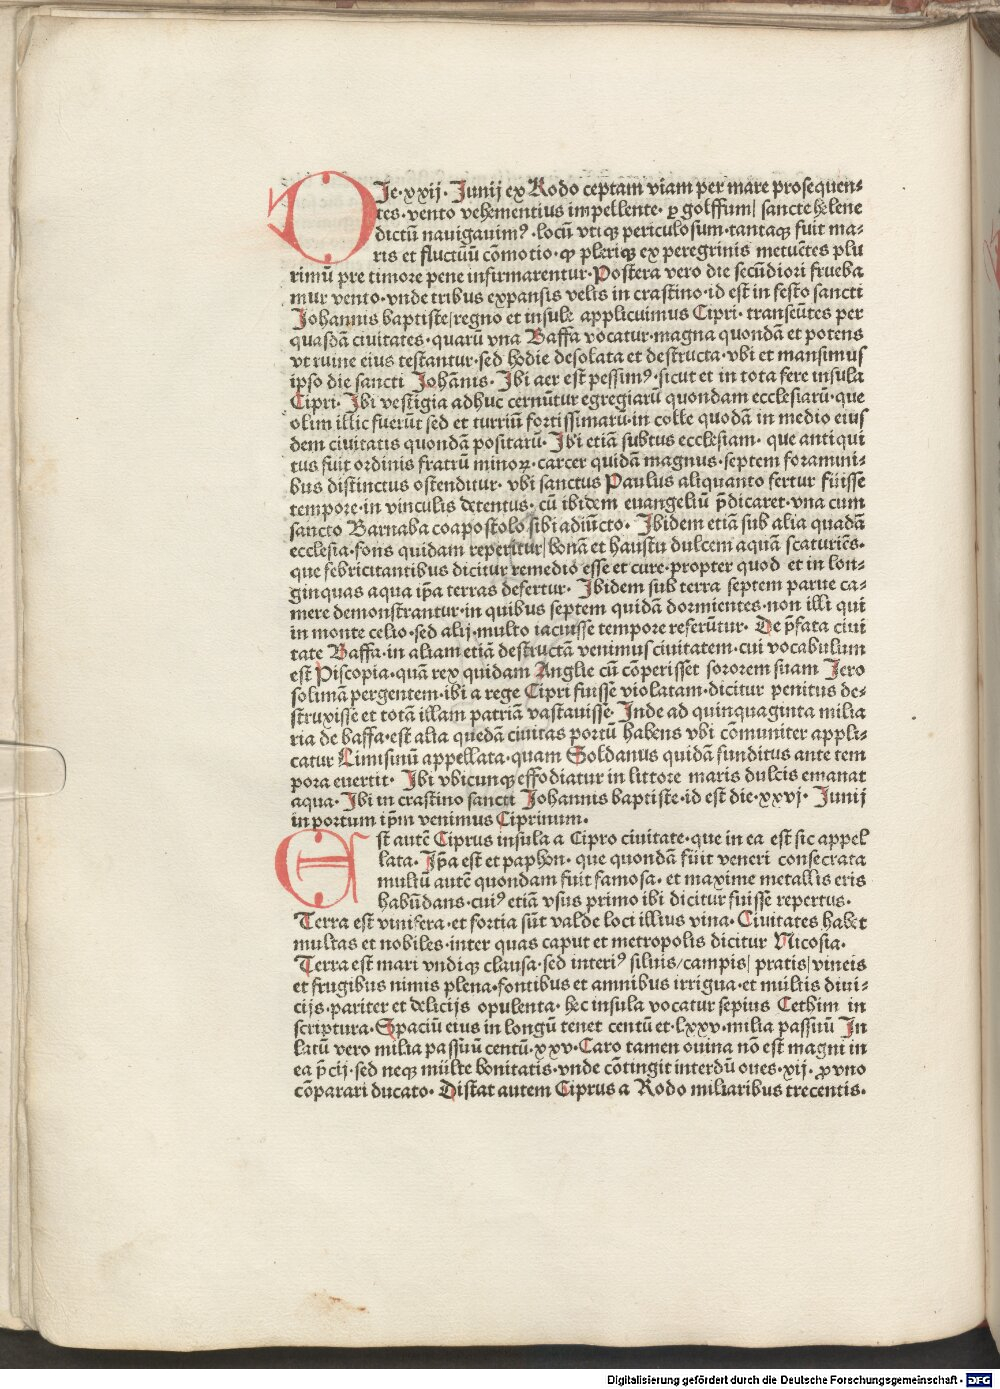 DIe·xxij· Junij ex Rodo ceptam viam per mare prosequen-
tes·vento vehementius impellente· ꝑ golffum| sancte helene
dictū nauigauimꝰ·locū vtiqꝫ periculosum·tantaqꝫ fuit ma-
ris et fluctuū cōmotio·ꝙ pleriqꝫ ex peregrinis metuētes plu
rimū pre timore pene infirmarentur·Postera vero die secūdiori frueba
mur vento·vnde tribus expansis velis in crastino·id est in festo sancti
Johannis baptiste|regno et insule applicuimus Cipri· transeūtes per
quasdā ciuitates·quarū vna Baffa vocatur·magna quondā et potens
vt ruine eius testantur·sed hodie desolata et destructa·vbi et mansimus
ipso die sancti Johānis· Ibi aer est pessimꝰ·sicut et in tota fere insula
Cipri· Ibi vestigia adhuc cernūtur egregiarū quondam ecclesiarū·que
olim illic fuerūt sed et turriū fortissimarū·in colle quodā in medio eius
dem ciuitatis quondā positarū· Ibi etiā subtus ecclesiam· que antiqui
tus fuit ordinis fratrū minoꝝ·carcer quidā magnus·septem foramini-
bus distinctus ostenditur· vbi sanctus Paulus aliquanto fertur fuisse
tempore·in vinculis detentus· cū ibidem euangeliū p̄dicaret·vna cum
sancto Barnaba coapostolo sibi adiūcto· Ibidem etiā sub alia quadā
ecclesia·fons quidam reperitur|bonā et haustu dulcem aquā scaturiēs·
que febricitantibus dicitur remedio esse et cure·propter quod et in lon-
ginquas aqua ip̄a terras defertur· Ibidem sub terra septem parue ca-
mere demonstrantur·in quibus septem quidā dormientes·non illi qui
in monte celio·sed alij·multo iacuisse tempore referūtur· De p̄fata ciui
tate Baffa·in aliam etiā destructā venimus ciuitatem·cui vocabulum
est Piscopia·quā rex quidam Anglie cū cōperisset sororem suam Jero
solimā pergentem·ibi a rege Cipri fuisse violatam·dicitur penitus de-
struxisse et totā illam patriā vastauisse· Inde ad quinquaginta milia
ria de baffa·est alia quedā ciuitas portū habens vbi cōmuniter appli-
catur Limisinū appellata·quam Soldanus quidā funditus ante tem
pora euertit· Ibi vbicunqꝫ effodiatur in littore maris dulcis emanat
aqua· Ibi in crastino sancti Johannis baptiste·id est die·xxvj· Junij
in portum ip̄m venimus Ciprinum·
Est autē Ciprus insula a Cipro ciuitate·que in ea est sic appel
lata· Ip̄a est et paphon· que quondā fuit veneri consecrata
multū autē quondam fuit famosa· et maxime metallis eris
habūdans·cuiꝰ etiā vsus primo ibi dicitur fuisse repertus·
Terra est vinifera·et fortia sūt valde loci illius vina·Ciuitates habet
multas et nobiles·inter quas caput et metropolis dicitur Nicosia·
Terra est mari vndiqꝫ clausa·sed interiꝰ siluis/campis| pratis|vineis
et frugibus nimis plena·fontibus et amnibus irrigua·et multis diui-
cijs·pariter et delicijs opulenta· hec insula vocatur sepius Cethim in
scriptura·Spaciū eius in longū tenet centū et·lxxv·milia passuū In
latū vero milia passuū centū·xxv·Caro tamen ouina nō est magni in
ea p̄cij·sed neqꝫ mūlte bonitatis·vnde cōtingit interdū oues·xij· ꝓ vno
cōparari ducato· Distat autem Ciprus a Rodo miliaribus trecentis·
Digitalisierung gefördert durch die Deutsche Forschungsgemeinschaft - DFG